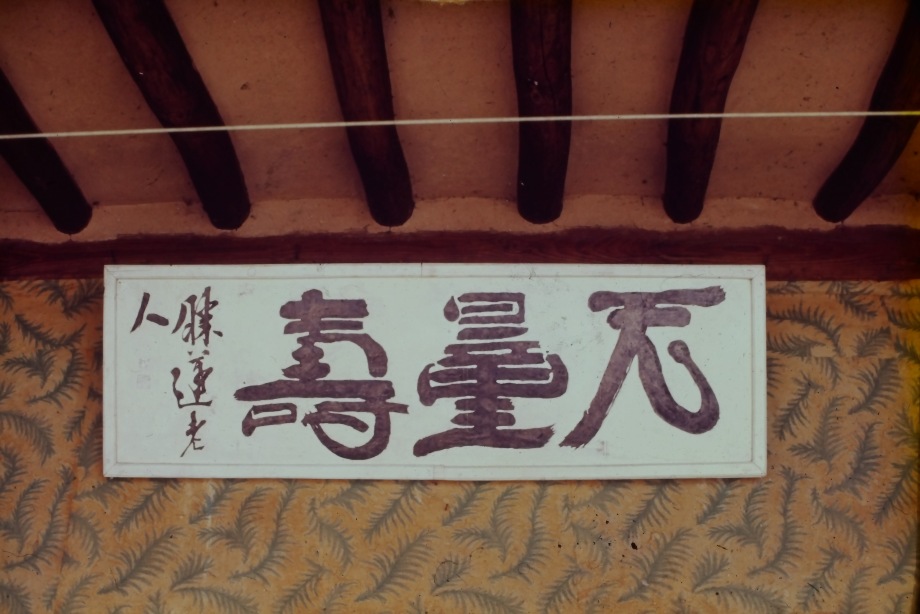 无量壽
勝蓮老
人